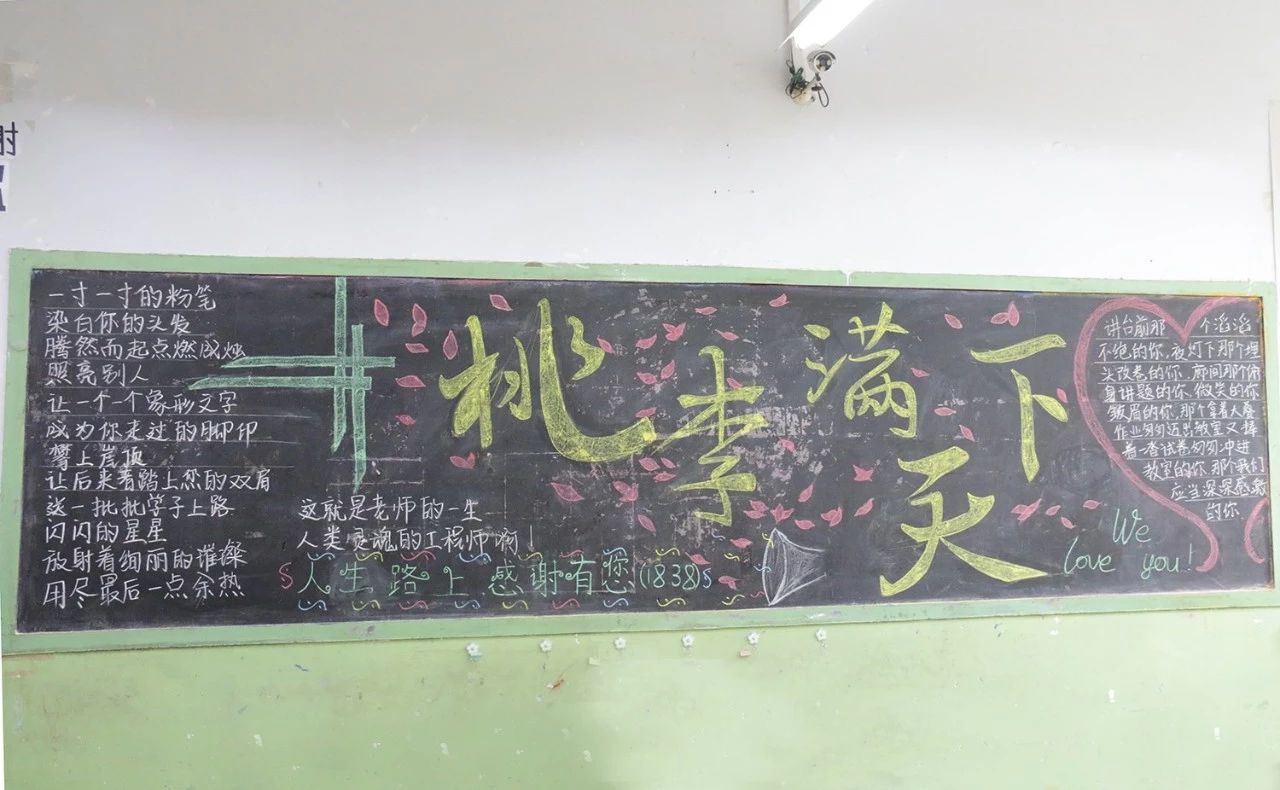 一寸一寸的粉笔
染白你的头发
腾然而起点燃成烛
照亮别人
让一个一个象形文字
成为你走过的脚印
攀上岩顶
让后来者踏上您的双肩
送一批批学子上路
闪闪的星星
放射着绚丽的璀璨
用尽最后一点余热
这就是老师的一生
人类灵魂的工程师啊!
人生路上感谢有您(1838)
桃李满天下
讲台前那个滔滔
不绝的你,夜灯下那个埋
头改卷的你,那间那个俯
身讲题的你,微笑的你
皱眉的你,那个拿着人卷
作业匆匆迈出教室又捧
着一沓试卷匆匆冲进
教室的你,那个我们
应当深深感激
的你
We
love you!